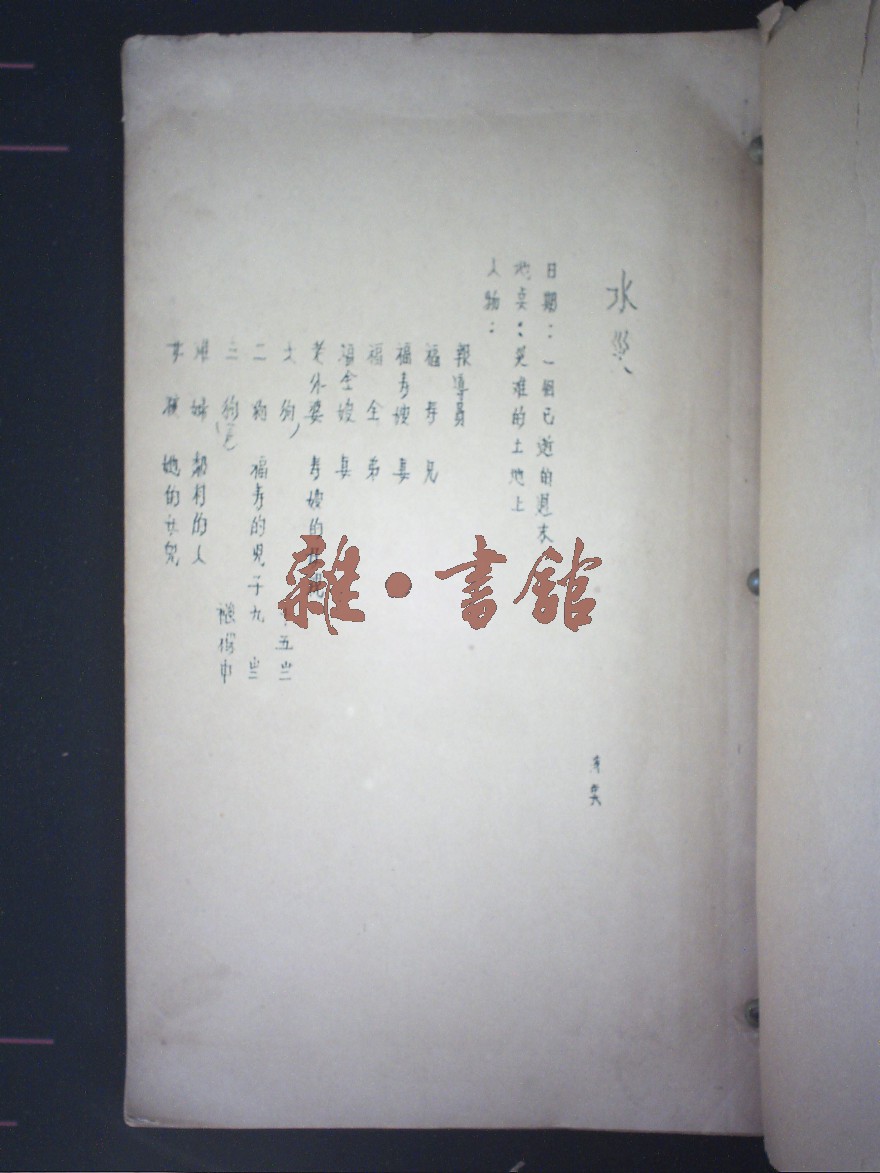 水災
日期：一個已逝的週末
地奌：災难的土地上
人物：
報導員
福寿 兄
福寿嫂 妻
福全 弟
福全嫂 妻
老外婆 寿嫂的
大狗 十五岁
二狗 福寿的児子九岁
三狗 襁褓中
难婦 鄰村的人
女孩 她的女兒
雜·書館